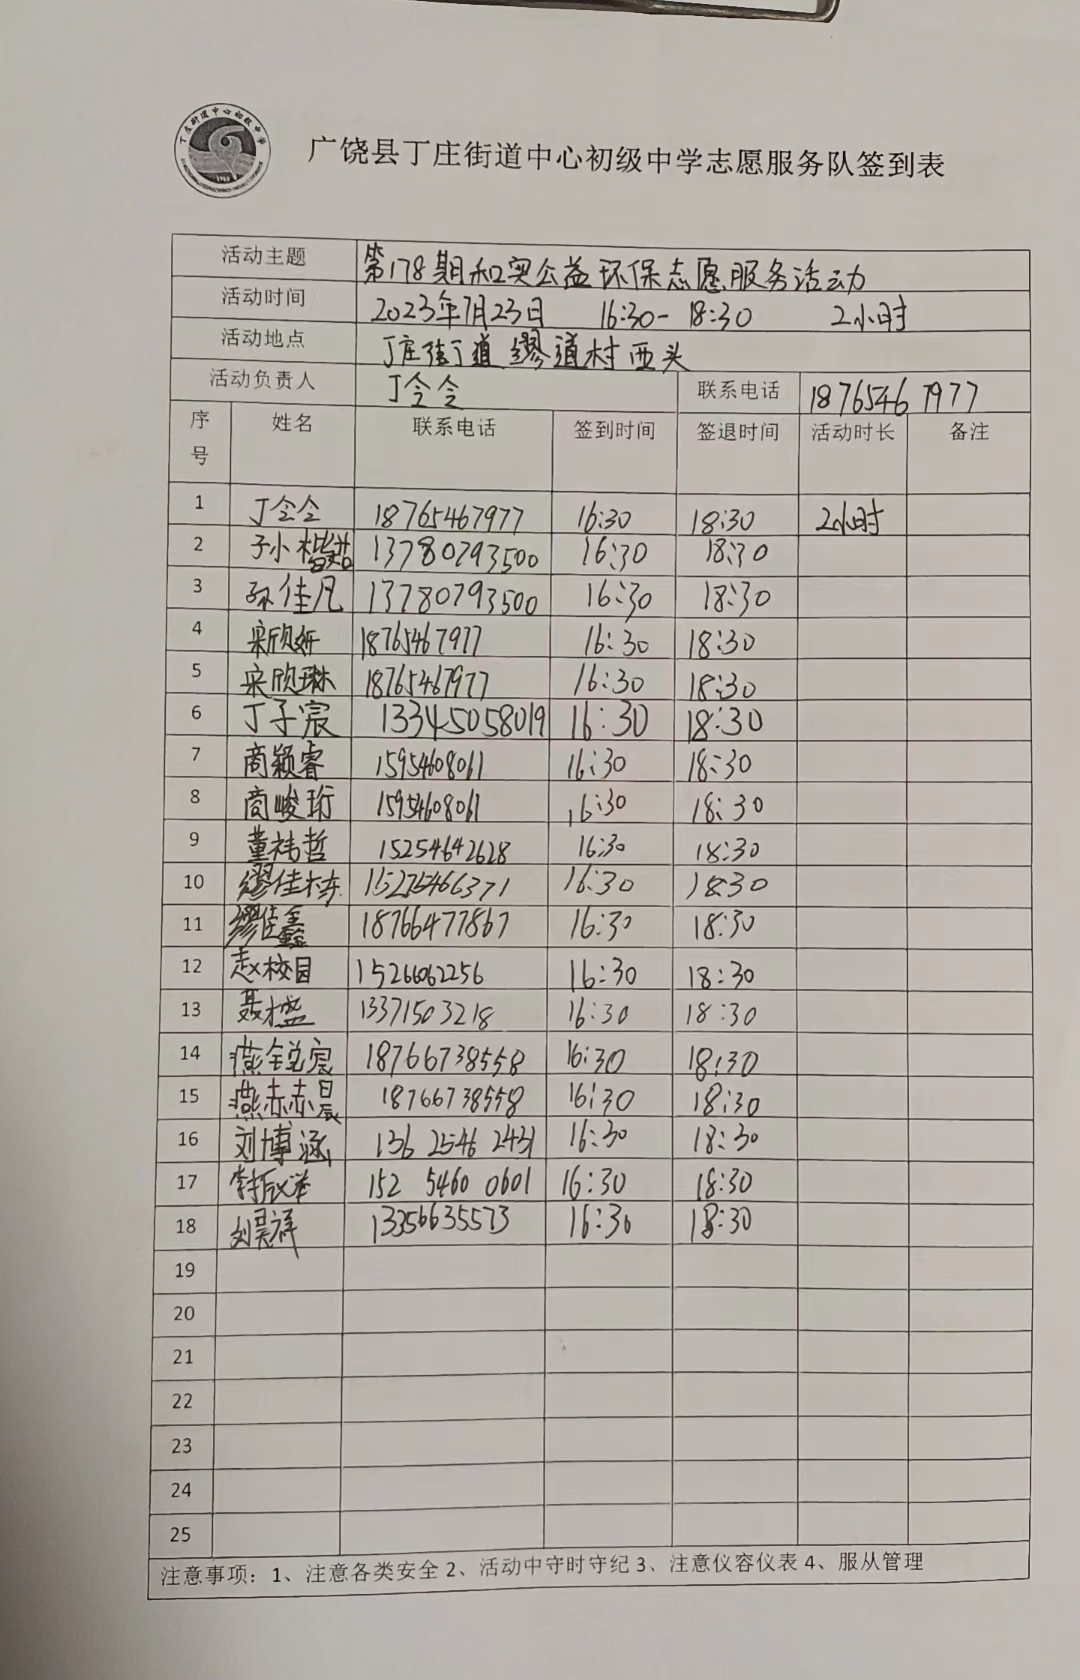 丁庄街道中心初级中学
广饶县丁庄街道中心初级中学志愿服务队签到表
活动主题 第178期和奥公益环保志愿服务活动
活动时间 2023年7月23日 16:30-18:30 2小时
活动地点 丁庄街道缪道村西头
活动负责人 丁令令 联系电话 18765467977
序号 姓名 联系电话 签到时间 签退时间 活动时长 备注
1 丁令令 18765467977 16:30 18:30 2小时
2 13780793500 16:30 18:30
3 孙佳凡 13780793500 16:30 18:30
4 宋欣妍 18765467977 16:30 18:30
5 宋欣琳 18765467977 16:30 18:30
6 丁子宸 13345058019 16:30 18:30
7 商颖睿 15954608061 16:30 18:30
8 商峻珩 15954608061 16:30 18:30
9 董祎哲 15254642628 16:30 18:30
10 缪佳栋 15275466371 16:30 18:30
11 缪佳鑫 18766477867 16:30 18:30
12 赵校园 15266062256 16:30 18:30
13 聂槛 13371503218 16:30 18:30
14 燕锐宸 18766738558 16:30 18:30
15 燕赤赤晨 18766738558 16:30 18:30
16 刘博涵 136 2546 2431 16:30 18:30
17 152 5460 0601 16:30 18:30
18 刘昊祥 13356635573 16:30 18:30
19
20
21
22
23
24
25
注意事项：1、注意各类安全 2、活动中守时守纪 3、注意仪容仪表 4、服从管理